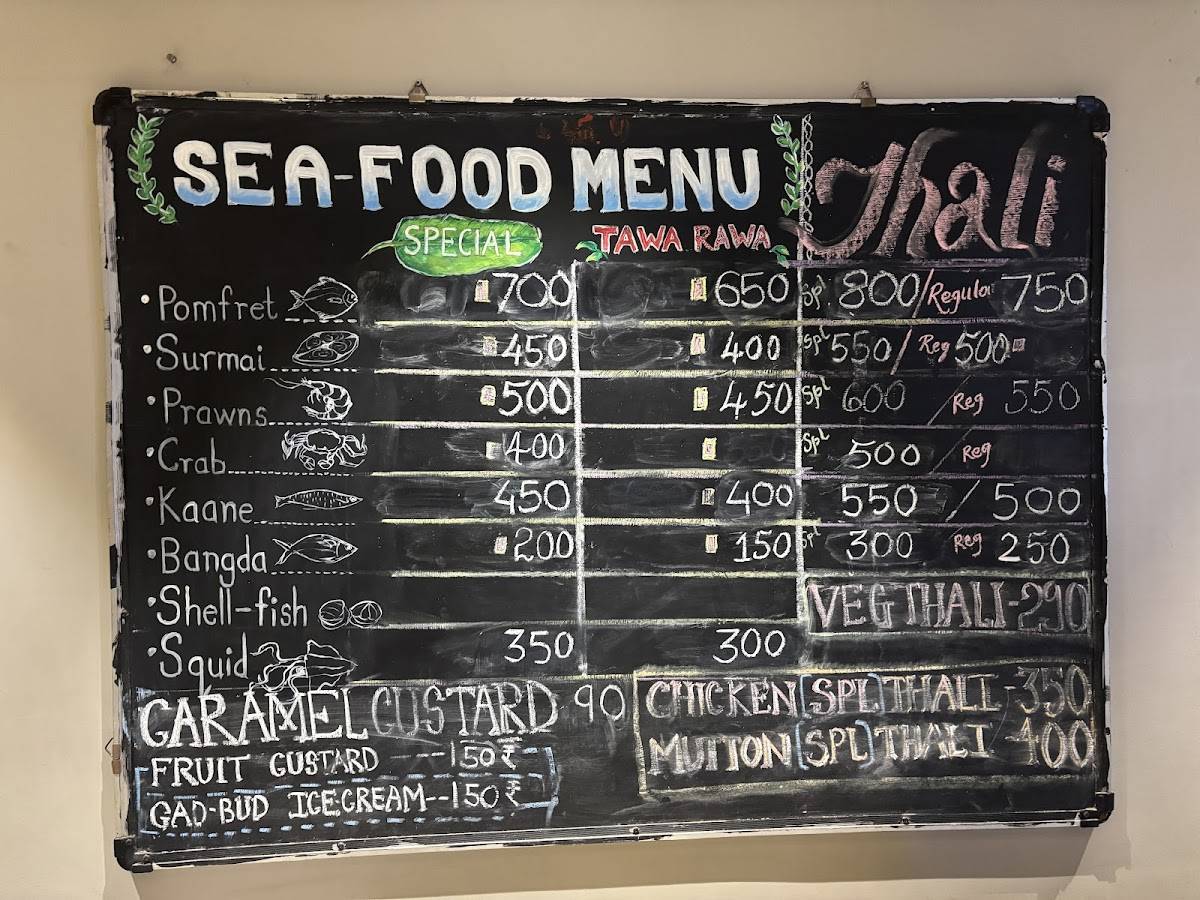 SEA-FOOD MENU Thali
SPECIAL TAWA RAWA
• Pomfret 700 650 Spl 800/Regular 750
• Surmai 450 400 Spl 550/ Reg 500
• Prawns 500 450 Spl 600 / Reg 550
• Crab 400 Spl 500 / Reg
• Kaane 450 400 550 / 500
• Bangda 200 150 Spl 300 Reg 250
• Shell-fish VEG THALI-290
• Squid 350 300
CARAMEL CUSTARD 90 CHICKEN [SPL] THALI -350
FRUIT CUSTARD ---150 ₹ MUTTON [SPL] THALI 400
GAD-BUD ICECREAM--150 ₹